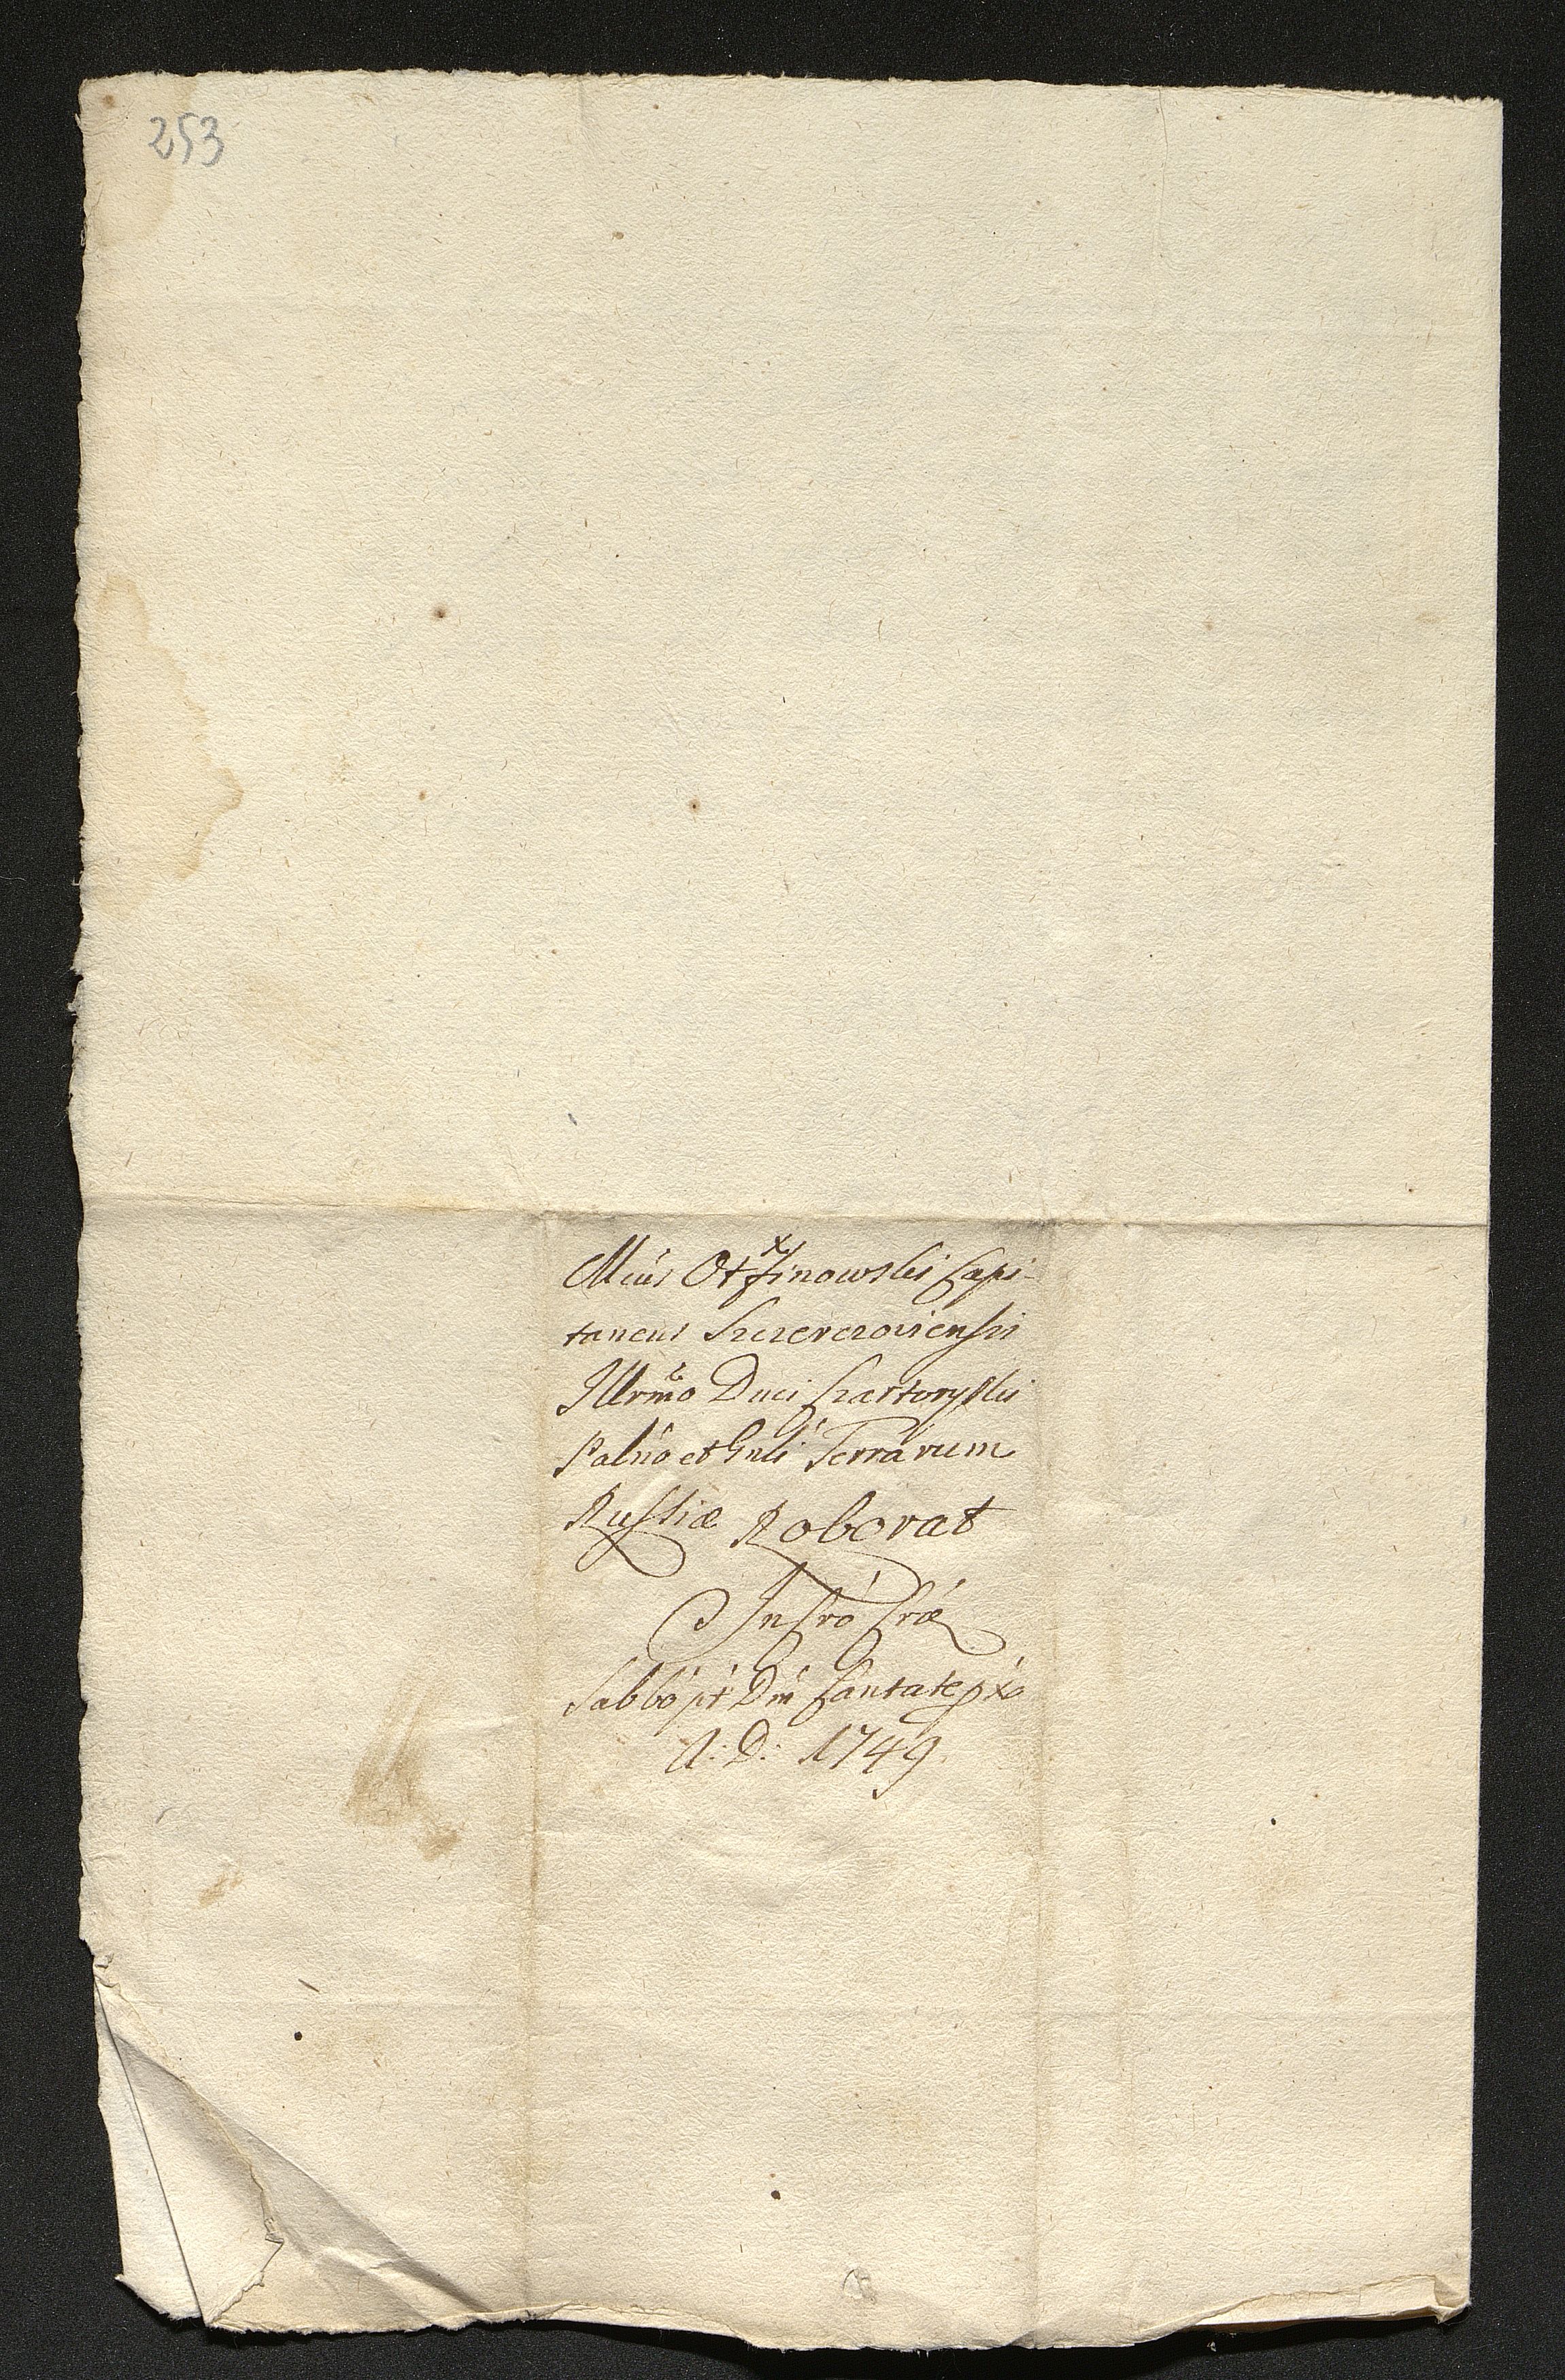 253
Mcús Otfinowski Capi-
taneus Szczerczoviensis
Illrmo Duci Czartoryski
Palńo et Gnli Terrarum
Russiæ Roborat
Sabbó pt Dm Cantate px̕
A: D: 1749.